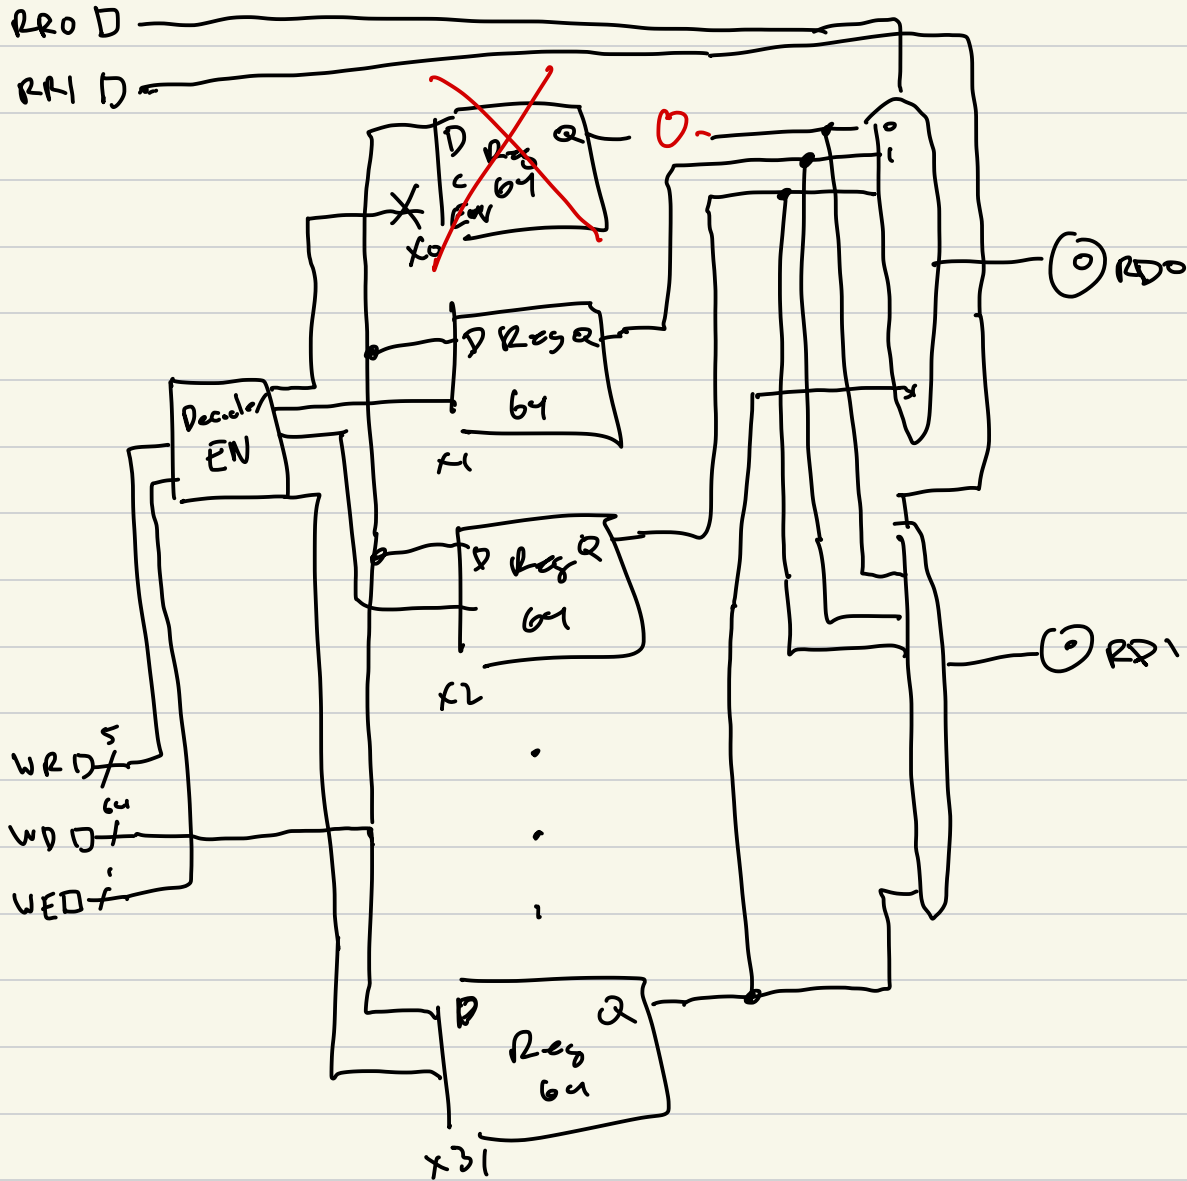 RR0
RR1
D Q 0
Reg
C 64
EN
X0
0
1
RD0
D Reg Q
64
X1
Decoder
EN
D Reg Q
64
X2
RD1
5
WR
64
WD
1
WE
D Q
Reg
64
X31